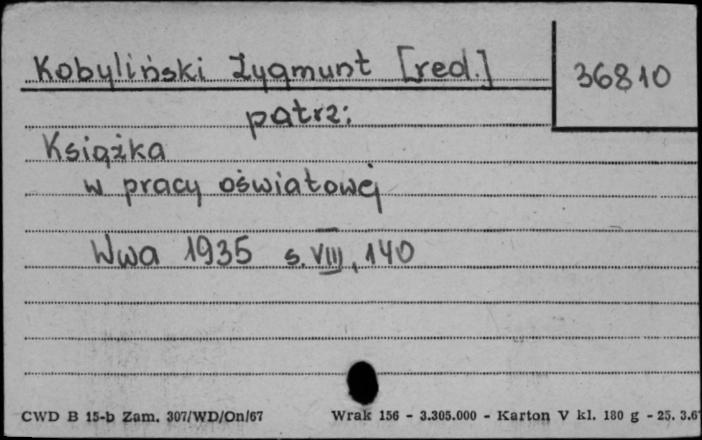 Kobyliński Zygmunt [red.]
36810
patrz:
Książka
w pracy oświatowej
Wwa 1935 s. VIII, 140
CWD B 15-b Zam. 307/WD/On/67 Wrak 156 - 3.305.000 - Karton V kl. 180 g - 25. 3.6